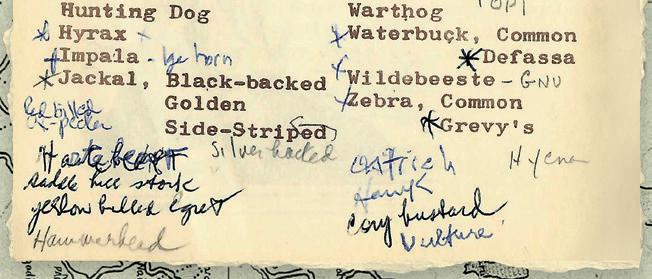 Hunting Dog
Hyrax
Impala - big horn
Jackal, Black-backed
Golden
Side-Striped
red billed
ox-pecker
Silverbacked
Hartebeest
saddle bill stork
yellow billed egret
Hammerhead
TOPI
Warthog
Waterbuck, Common
Defassa
Wildebeeste - GNU
Zebra, Common
Grevy's
Ostrich
Hyena
Hawk
Cory bustard
Vulture